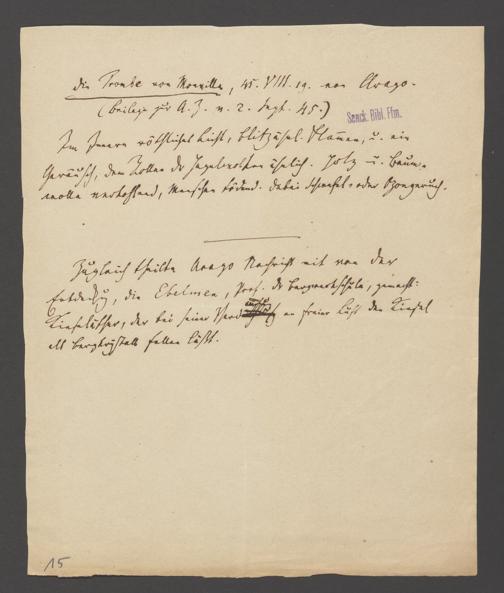 die Trombe von Monville, 45. VIII. 19. von Arago.
(Beilage zur A. Z. v. 2. Sept. 45.)
Senck. Bibl. Ffm.
Im Innern röthliches Licht, blitzähnl. Flammen, u. ein
Geräusch, dem Rollen der Hagelwolken ähnlich. Holz u. Baum-
wolle verkohlend, Menschen tödend. dabei Schwefel- oder Ozongeruch.
Zugleich theilte Arago Nachricht mit von der
Entdeckg, die Ebelmen, Prof. der Bergwerkschule, gemacht:
Kieseläther, der bei seiner an freier Luft den Kiesel
als Bergkrystall fallen läßt.
15